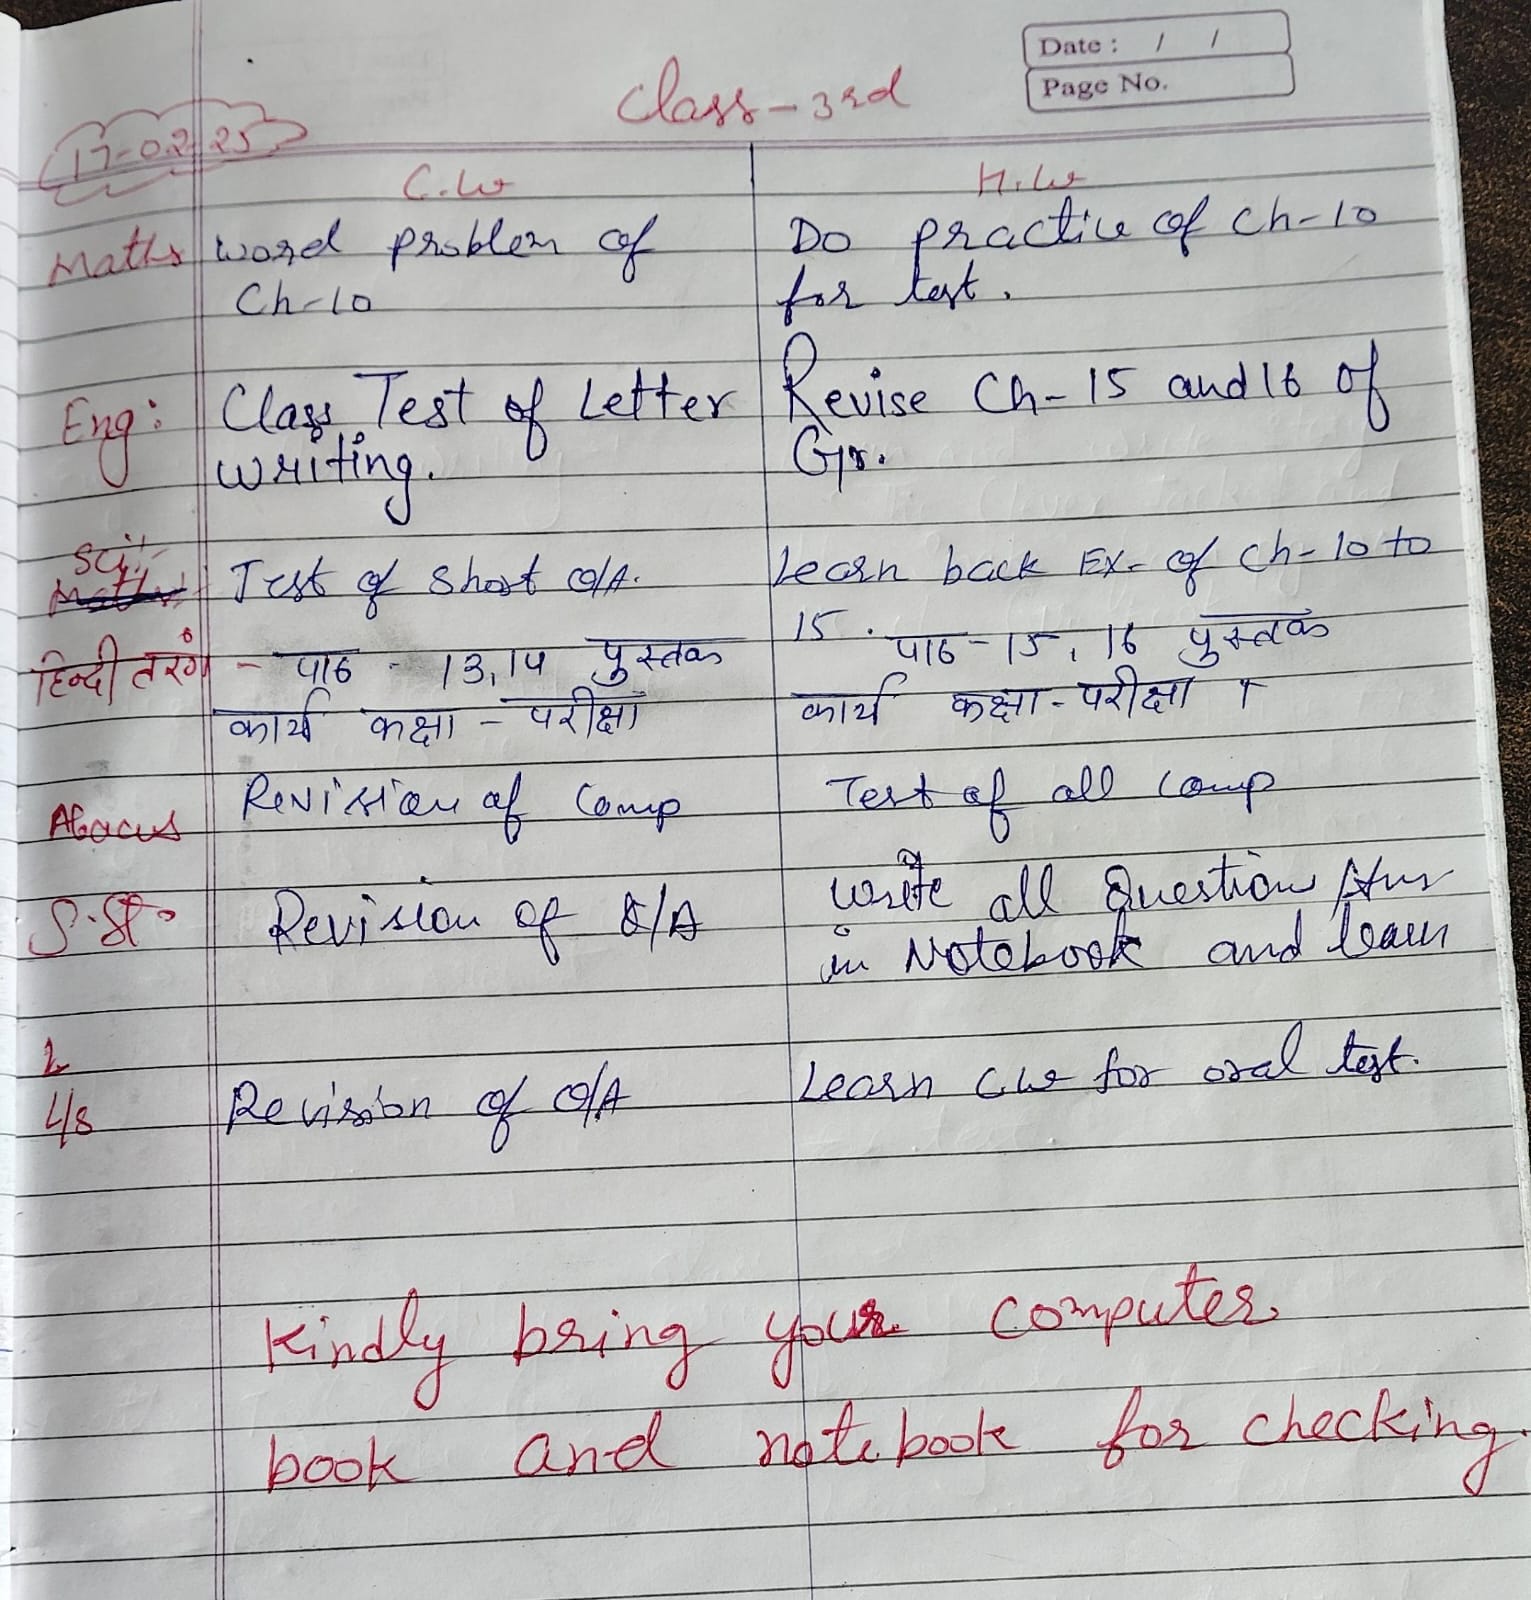 Date : / /
Page No.
Class - 3rd
17-02-25
C.W H.W
Maths word problem of Do practice of Ch-10
Ch-10 for test.
Eng: Class Test of Letter Revise Ch-15 and 16 of
writing. Gr.
Sci:- Test of Short Q/A. Learn back Ex. of Ch-10 to
15.
हिन्दी तरंग - पाठ - 13,14 पुस्तक पाठ-15, 16 पुस्तक
कार्य कक्षा - परीक्षा कार्य कक्षा - परीक्षा ।
Abacus Revision of Comp Test of all Comp
S.St. Revision of Q/A Write all Question Ans
in Notebook and learn
2
L/s Revision of Q/A Learn C.W for oral test.
Kindly bring your computer
book and notebook for checking.